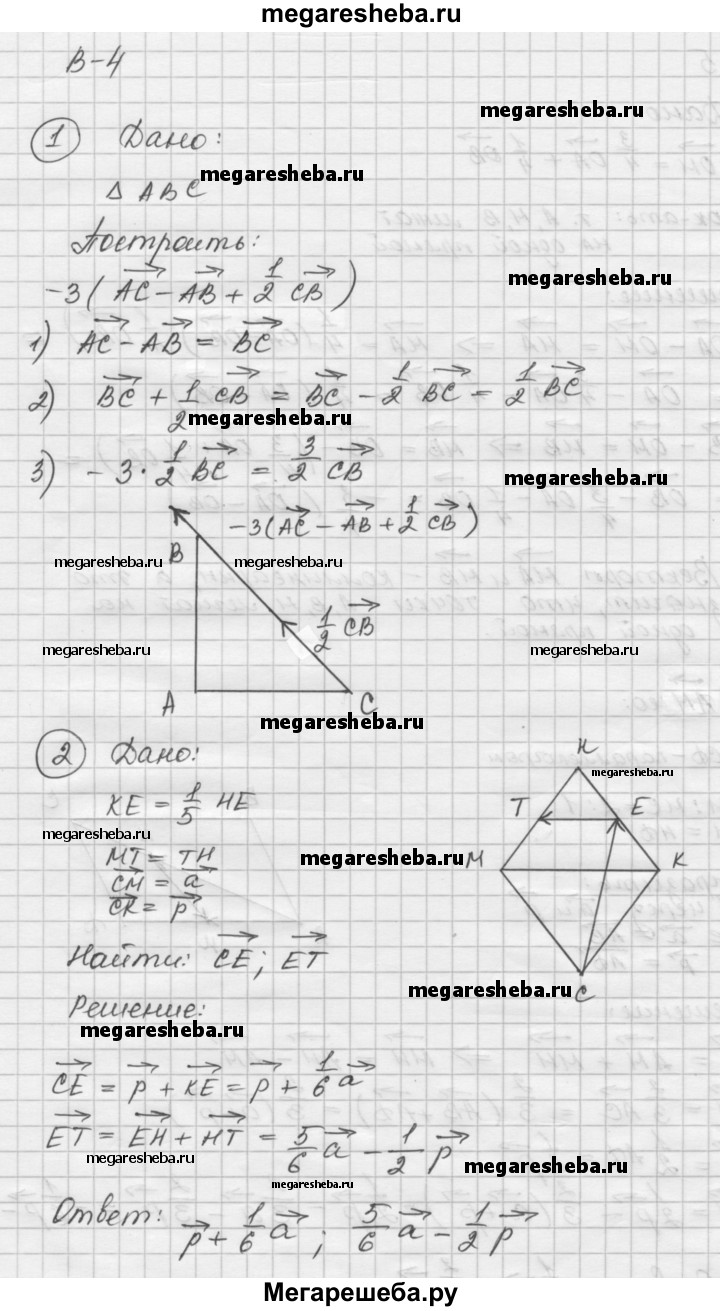 megaresheba.ru
В-4
megaresheba.ru
1 Дано:
megaresheba.ru
Δ ABC
Построить:
megaresheba.ru
-3(AC - AB + 1/2 CB)
1) AC - AB = BC
2) BC + 1/2 CB = BC - 1/2 BC = 1/2 BC
megaresheba.ru
3) -3 · 1/2 BC = 3/2 CB
megaresheba.ru
-3(AC - AB + 1/2 CB)
B
megaresheba.ru megaresheba.ru
1/2 CB
megaresheba.ru megaresheba.ru
A C
megaresheba.ru
2 Дано:
H
megaresheba.ru
KE = 1/5 HE
T E
megaresheba.ru
MT = TH
megaresheba.ru
M K
CM = a
CK = p
Найти: CE; ET
megaresheba.ru
C
Решение:
megaresheba.ru
CE = p + KE = p + 1/6 a
ET = EH + HT = 5/6 a - 1/2 p
megaresheba.ru megaresheba.ru
megaresheba.ru
Ответ: p + 1/6 a ; 5/6 a - 1/2 p
Мегарешеба.ру